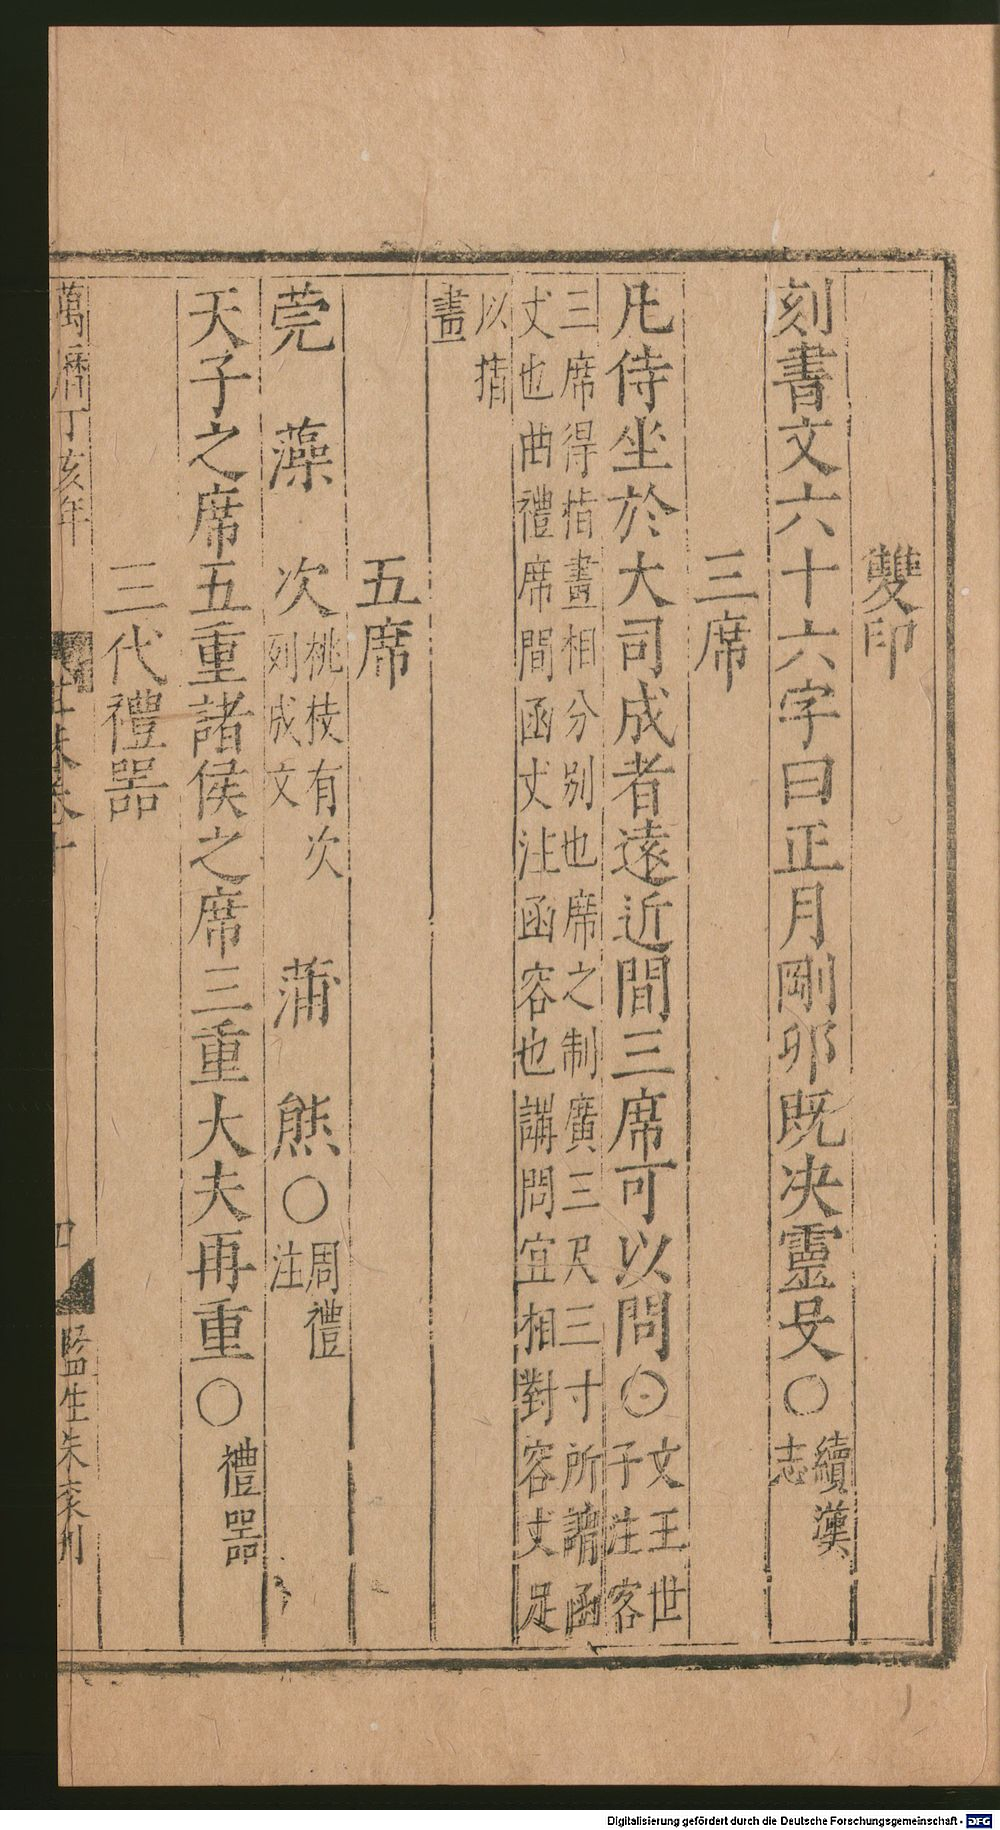 雙印
刻書文六十六字曰正月剛卯既决靈殳〇續漢志
三席
凡侍坐於大司成者遠近間三席可以問〇文王世子注客
三席得指畫相分别也席之制廣三尺三寸所謂函
丈也曲禮席間函丈注函容也講問宜相對容丈足
以指
畫
五席
莞 藻 次桃枝有次列成文 蒲 熊〇周禮注
天子之席五重諸侯之席三重大夫再重〇禮器
三代禮器
萬曆丁亥年
四
監生朱 刋
Digitalisierung gefördert durch die Deutsche Forschungsgemeinschaft - DFG